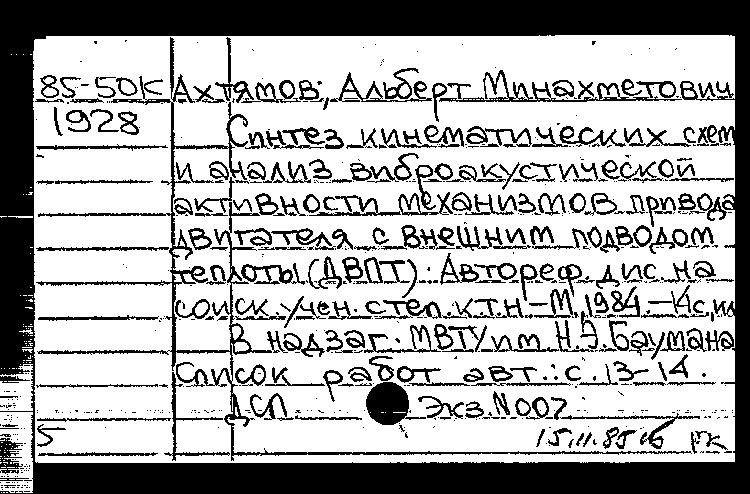 85-50К Ахтямов, Альберт Минахметович
1928 Синтез кинематических схем
и анализ виброакустической
активности механизмов привода
двигателя с внешним подводом
теплоты (ДВПТ): Автореф. дис. на
соиск. учен. степ. к.т.н. – М, 1984. –
В надзаг. МВТУ им. Н.Э. Баумана
Список работ авт.: с. 13-14.
ДСП. Экз. N007
5 15.11.85